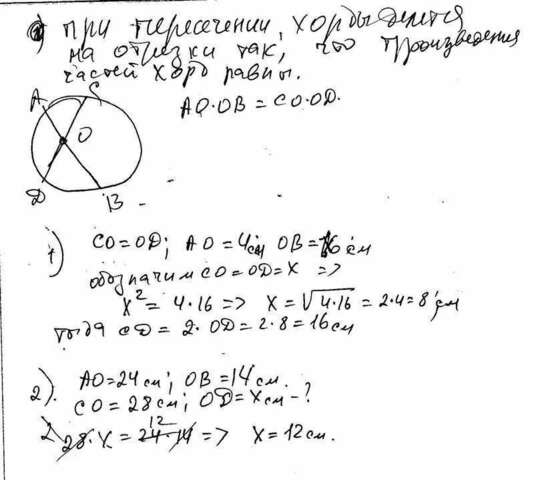 при пересечении, хорды делется
на отрезки так, что произведения
частей хорд равны.
A C
AO·OB = CO·OD.
O
D B
1) CO = OD; AO = 4см OB = 16 см
обозначим CO = OD = x =>
x² = 4·16 => x = √4·16 = 2·4 = 8 см
тогда CD = 2·OD = 2·8 = 16 см
2). AO = 24 см; OB = 14 см.
CO = 28 см; OD = x см - ?
12
28·x = 24·14 => x = 12 см.